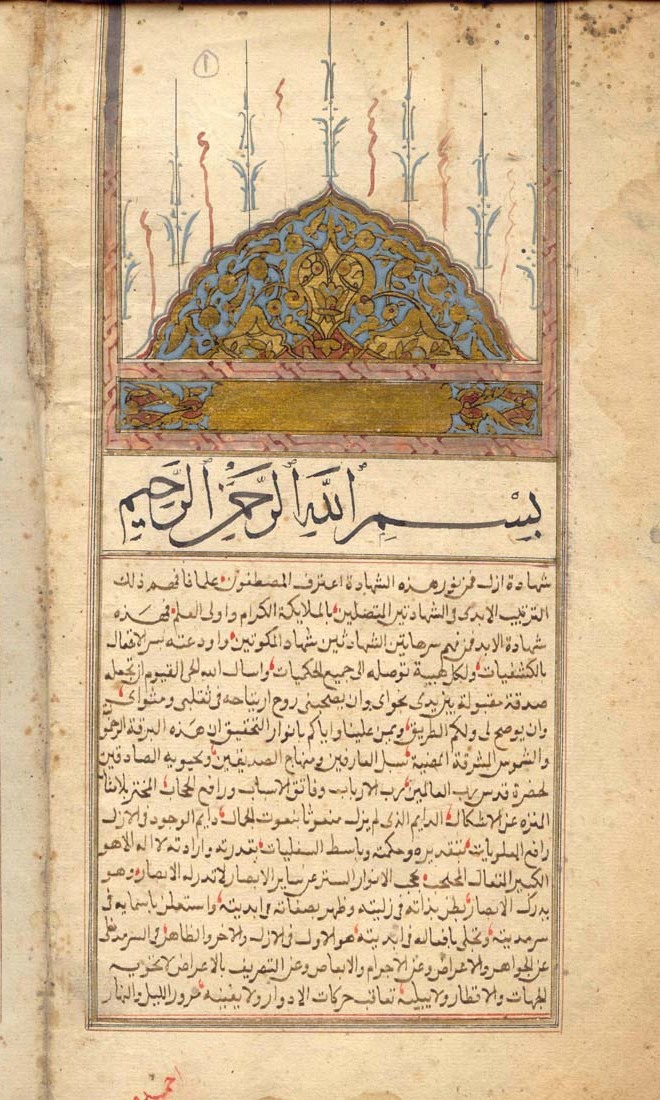 ١
بِسْمِ ٱللَّهِ ٱلرَّحْمَٰنِ ٱلرَّحِيمِ
شهادة ازل فمن نور هذه الشهادة اعترف المصطفون علما فافهم ذلك
الترتيب الابدى فى الشهادتين المتصلين بالملايكة الكرام واولى العلم فهذه
شهادة الابد فمن فهم سر هاتين الشهادتين شهاد المكونين واودعته بسر الافعال
بالكشفيات ولكل هيبة توصله الى جميع الحكميات واسال الله الحى القيوم ان تجعله
صدقة مقبولة بين يدى نجواى وان يصحبنى روح ارتياحه فى تقلبى ومثواى
وان يوضح لى ولكم الطريق ويمن علينا واياكم بانوار التحقيق ان هذه البرقة
والشموس المشرقة المضيئة سبل العارفين ومنهاج الصديقين ومحبوبه الصادقين
لحضرة قدس رب العالمين رب الارباب وفاتق الاسباب ورافع الحجاب
المنزه عن الاشكال الدايم الذى لم يزل منعوتا بنعوت الجمال دايم الوجود فى الازل
رافع العلويات بتقديره وحكمته وباسط السفليات بقدرته وارادته لا اله الا هو
الكبير المتعال عن ساير الابصار لا تدركه الابصار وهو
يدرك الابصار بطن بذاته فى ازليته وظهر بصفاته فى ابديته واستعلى باسمايه فى
سرمديته وتجلى بافعاله فى ابديته هو الاول فى الازل والاخر والظاهر فى السرمد
عن الجواهر والاعراض وعن الاجرام والابعاض وعن التعريف بالاعراض لا تحويه
الجهات والاقطار ولا يبليه تعاقب حركات الادوار ولا يفنيه مرور الليل والنهار